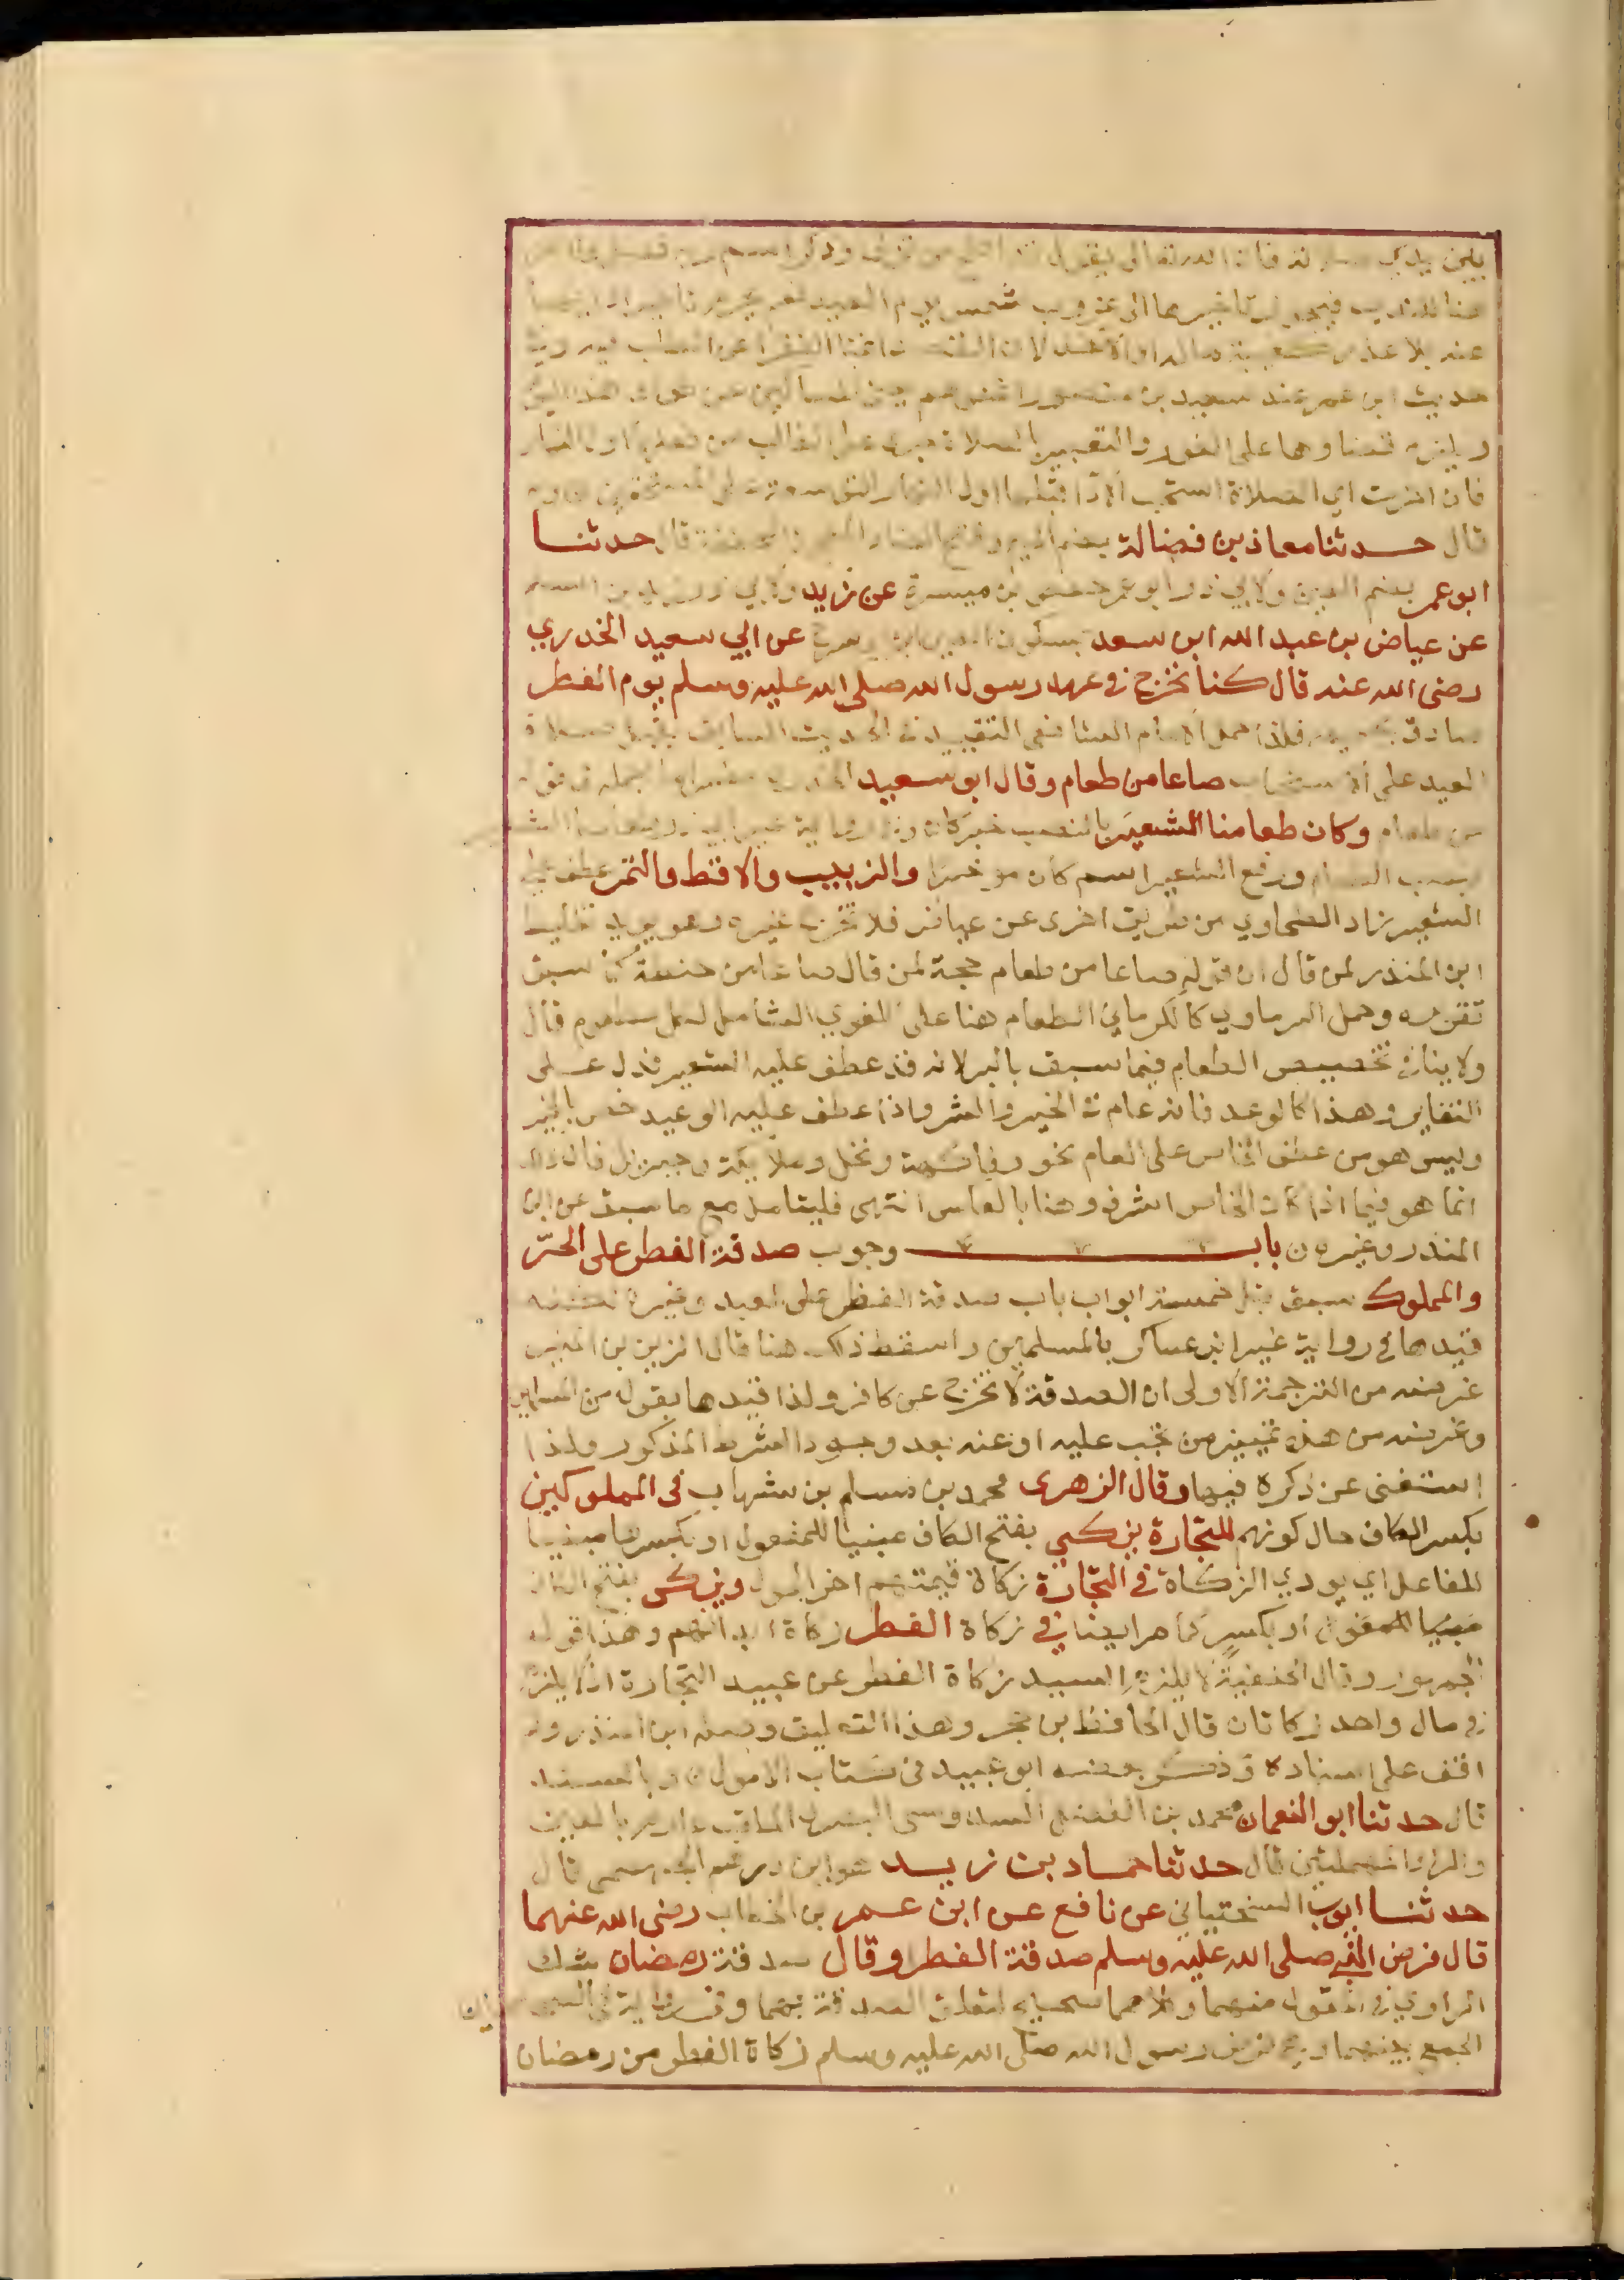 بين يدي صلاته فان الله تعالى يقول قد افلح من تزكى وذكر اسم ربه فصلى
هنا للندب فيجوز تاخيرها الى غروب شمس يوم العيد نعم يحرم تاخير
عنه بلا عذر كغيبة ماله او الاخذ لان القصد اغنا الفقرا عن الطلب فيه وفي
حديث ابن عمر عند سعيد بن منصور اغنوهم يعني المساكين عن طواف هذا اليوم
ويلزم قضاوها على الفور والتعبير بالصلاة جرى على الغالب من فعلها اول النهار
فان اخرت اي الصلاة استحب الادا قبلها اول النهار للتوسعة على المستحقين
قال حدثنا معاذ بن فضالة بضم الميم وفتح الضاد المعجمة قال حدثنا
ابو عمر بضم العين ولابي ذر ابو عمر حفص بن ميسرة عن زيد ولابي ذر
عن عياض بن عبد الله ابن سعد بسكون العين ابن ابي سرح عن ابي سعيد الخدري
رضي الله عنه قال كنا نخرج في عهد رسول الله صلى الله عليه وسلم يوم الفطر
صادق بجميعه فلذا حمل الامام الشافعي التقييد في الحديث السابق بقبل صلاة
العيد على الاستحباب صاعا من طعام وقال ابو سعيد
من طعام وكان طعامنا الشعير بالنصب خبر كان
ورفع الشعير اسم كان موخرا والزبيب والاقط والتمر عطف على
الشعير زاد الطحاوي من طريق اخرى عن عياض فلا نخرج غيره وهو يويد تغليط
ابن المنذر لمن قال ان قوله صاعا من طعام حجة لمن قال صاعا من حنطة كما سبق
تقريره وحمل البرماوي كالكرماني الطعام هنا على اللغوي الشامل لكل مطعوم قال
ولا ينافي تخصيص الطعام فيما سبق بالبر لانه قد عطف عليه الشعير فدل على
التغاير وهذا كالوعد فانه عام في الخير والشر واذا عطف عليه الوعيد خص بالخير
وليس هو من عطف الخاص على العام نحو وفاكهة ونخل وملايكة وجبريل فان ذلك
انما هو فيما اذا كان الخاص اشرف وهنا بالعكس انتهى فليتامل مع ما سبق عن ابن
المنذر وغيره ن باب وجوب صدقة الفطر على الحر
والمملوك سبق قبل خمسة ابواب باب صدقة الفطر على العبد وغيره لكنه
قيدها في رواية غير ابن عساكر بالمسلمين واسقط ذلك هنا قال الزين بن المنير
غرضه من الترجمة الاولى ان الصدقة لا تخرج عن كافر ولذا قيدها بقوله من المسلمين
وغرضه من هذه تمييز من تجب عليه او عنه بعد وجود الشرط المذكور ولذا
استغنى عن ذكره فيها وقال الزهري محمد بن مسلم بن شهاب في المملوكين
بكسر الكاف حال كونهم للتجارة يزكي بفتح الكاف مبنيا للمفعول او بكسرها مبنيا
للفاعل اي يودي الزكاة في التجارة زكاة قيمتهم اخر الحول ويزكى بفتح الكاف
مبنيا للمفعول او بكسر كما مر ايضا في زكاة الفطر زكاة ابدانهم وهذا قول
الجمهور وقال الحنفية لا يلزم السيد زكاة الفطر عن عبيد التجارة اذ لا يلزم
في مال واحد زكاتان قال الحافظ بن حجر وهذا التعليق وصله ابن المنذر ولم
اقف على اسناده وذكر بعضه ابو عبيد في كتاب الاموال وبالسند
قال حدثنا ابو النعمان محمد بن الفضل السدوسي البصري الملقب بعارم بالعين
والرا المهملتين قال حدثنا حماد بن زيد هو ابن درهم الجهضمي قال
حدثنا ايوب السختياني عن نافع عن ابن عمر بن الخطاب رضي الله عنهما
قال فرض النبي صلى الله عليه وسلم صدقة الفطر او قال صدقة رمضان شك
الراوي في القول منهما وكلاهما صحيح لتعلق الصدقة بهما وفي رواية
الجمع بينهما فرض رسول الله صلى الله عليه وسلم زكاة الفطر من رمضان